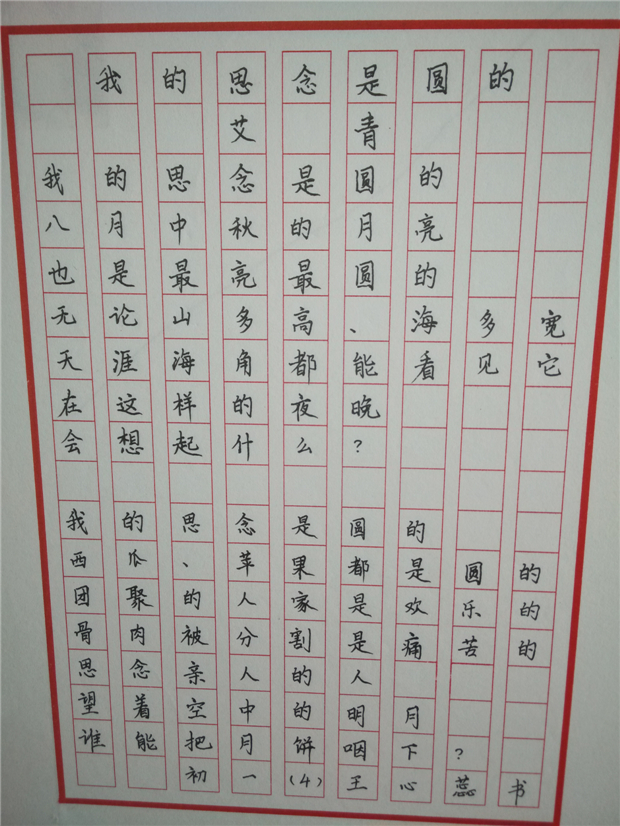 我的思念是圆的
艾青
我的思念是圆的
八月中秋的月亮
也是最亮最圆的
无论山多高、海多宽
天涯海角都能看见它
在这样的夜晚
会想起什么?

我的思念是圆的
西瓜、苹果都是圆的
团聚的人家是欢乐的
骨肉被分割是痛苦的
思念亲人的人
望着空中的明月
谁能把月饼咽下?
初一(4)王心蕊书